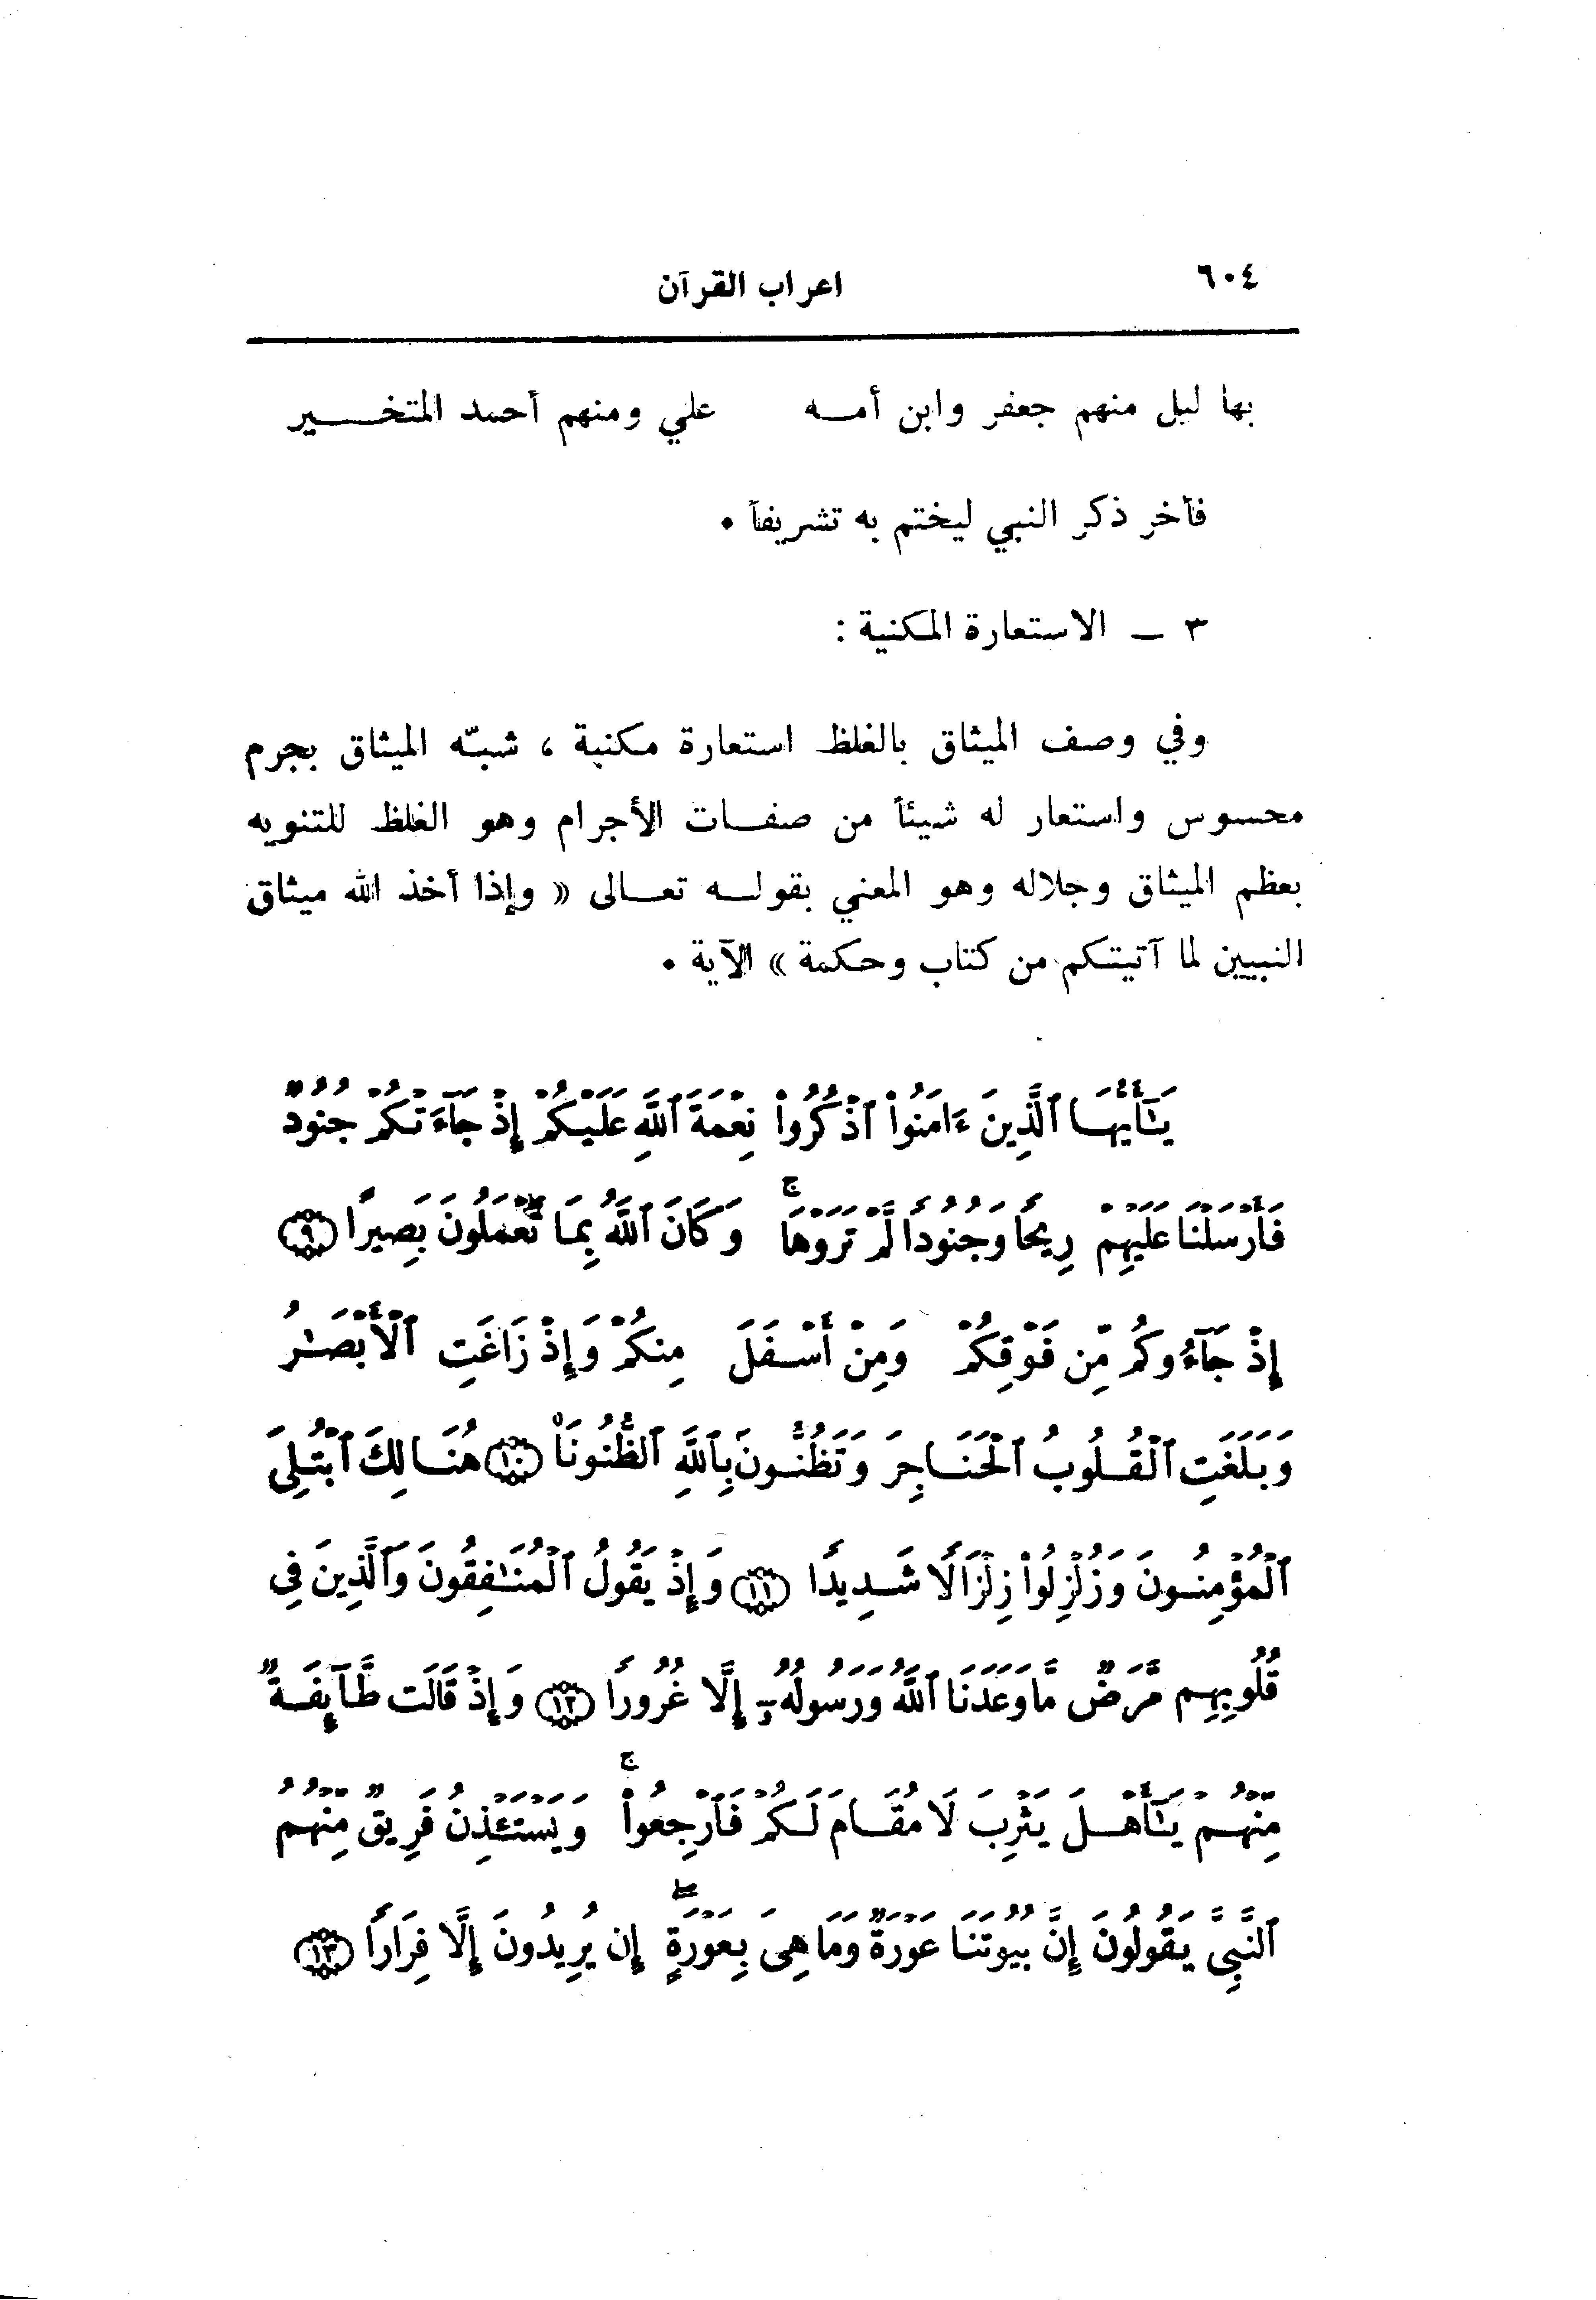 ٦٠٤
اعراب القرآن
بها ليل منهم جعفر وابن أمـــه علي ومنهم أحمد المتخـــــير
فأخر ذكر النبي ليختم به تشريفاً ٠
٣ ــ الاستعارة المكنية :
وفي وصف الميثاق بالغلظ استعارة مكنية ، شبّه الميثاق بجرم
محسوس واستعار له شيئاً من صفـــات الأجرام وهو الغلظ للتنويه
بعظم الميثاق وجلاله وهو المعني بقولـــه تعـــالى « وإذا أخذ الله ميثاق
النبيين لما آتيتكم من كتاب وحكمة » الآية ٠
يَـٰٓأَيُّهَـا ٱلَّذِينَ ءَامَنُوا۟ ٱذْكُرُوا۟ نِعْمَةَ ٱللَّهِ عَلَيْكُمْ إِذْ جَآءَتْكُمْ جُنُودٌ
فَأَرْسَلْنَا عَلَيْهِمْ رِيحًا وَجُنُودًا لَّمْ تَرَوْهَا ۚ وَكَانَ ٱللَّهُ بِمَا تَعْمَلُونَ بَصِيرًا ﴿٩﴾
إِذْ جَآءُوكُم مِّن فَوْقِكُمْ وَمِنْ أَسْفَلَ مِنكُمْ وَإِذْ زَاغَتِ ٱلْأَبْصَـٰرُ
وَبَلَغَتِ ٱلْقُلُوبُ ٱلْحَنَاجِرَ وَتَظُنُّونَ بِٱللَّهِ ٱلظُّنُونَا۠ ﴿١٠﴾ هُنَالِكَ ٱبْتُلِىَ
ٱلْمُؤْمِنُونَ وَزُلْزِلُوا۟ زِلْزَالًا شَدِيدًا ﴿١١﴾ وَإِذْ يَقُولُ ٱلْمُنَـٰفِقُونَ وَٱلَّذِينَ فِى
قُلُوبِهِم مَّرَضٌ مَّا وَعَدَنَا ٱللَّهُ وَرَسُولُهُۥٓ إِلَّا غُرُورًا ﴿١٢﴾ وَإِذْ قَالَت طَّآئِفَةٌ
مِّنْهُمْ يَـٰٓأَهْلَ يَثْرِبَ لَا مُقَامَ لَكُمْ فَٱرْجِعُوا۟ ۚ وَيَسْتَـْٔذِنُ فَرِيقٌ مِّنْهُمُ
ٱلنَّبِىَّ يَقُولُونَ إِنَّ بُيُوتَنَا عَوْرَةٌ وَمَا هِىَ بِعَوْرَةٍ ۖ إِن يُرِيدُونَ إِلَّا فِرَارًا ﴿١٣﴾